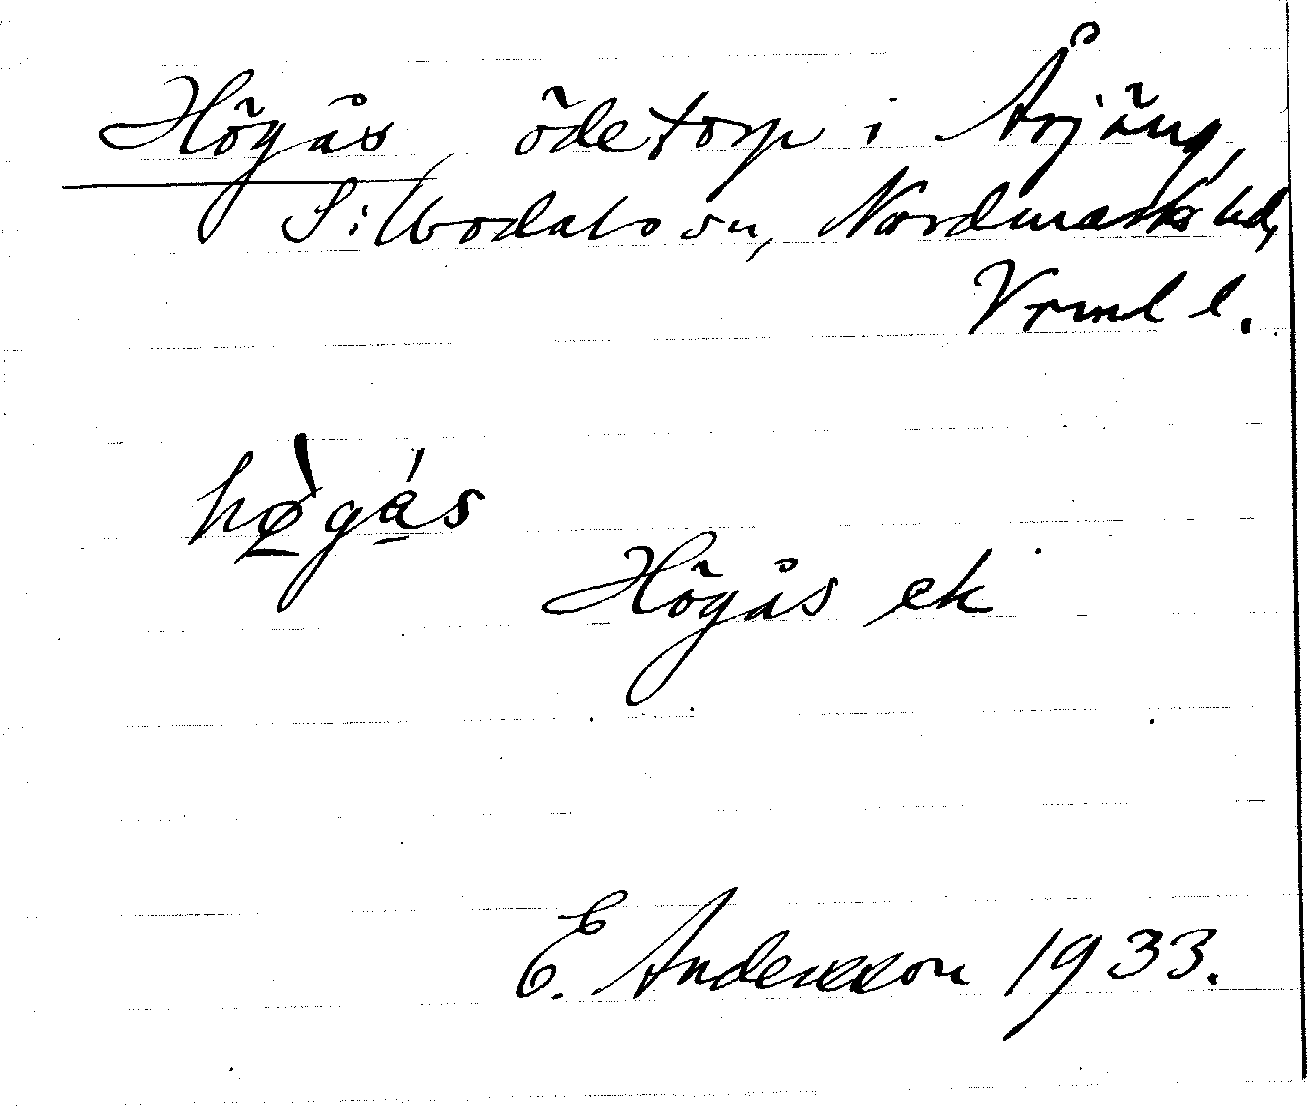 Högås, ödetorp i Årjäng,
Silbodals sn, Nordmarks hd,
Vrml l.
hø̀gás
Högås ek
E. Andersson 1933.